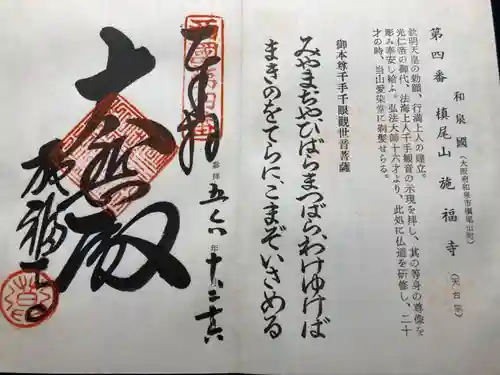 第四番 槇尾山 施福寺 (天台宗)
和泉國 (大阪府和泉市槇尾山町)
欽明天皇の勅願、行満上人の建立。
光仁帝の御代、法海上人千手観音の示現を拝し、其の等身の尊像を
彫み奉安し給ふ。弘法大師十六才より、此処に仏道を研修し、二十
才の時、当山愛染堂に剃髪せらる。
御本尊千手千眼観世音菩薩
みやまぢやひばらまつばらわけゆけば
まきのをでらにこまぞいさめる
西國第四番
奉拝
参拝 五六年 十二
大悲殿
施福寺